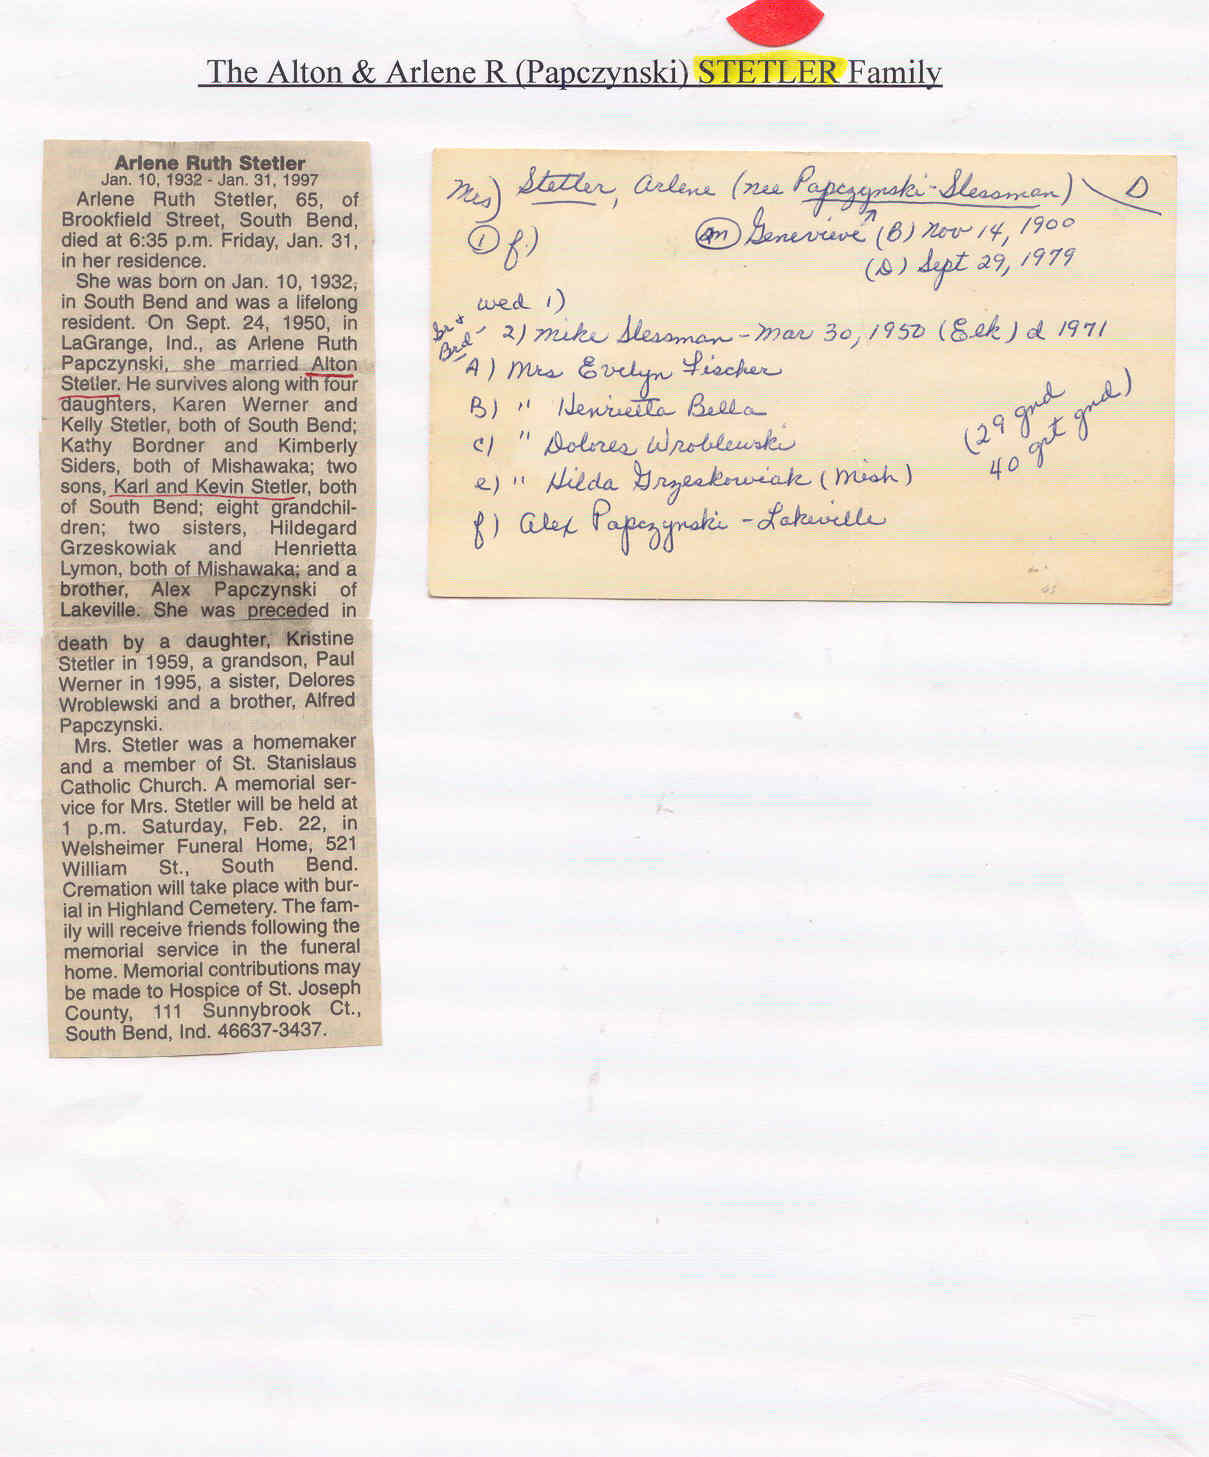 The Alton & Arlene R (Papczynski) STETLER Family
Arlene Ruth Stetler
Jan. 10, 1932 - Jan. 31, 1997
Arlene Ruth Stetler, 65, of
Brookfield Street, South Bend,
died at 6:35 p.m. Friday, Jan. 31,
in her residence.
She was born on Jan. 10, 1932,
in South Bend and was a lifelong
resident. On Sept. 24, 1950, in
LaGrange, Ind., as Arlene Ruth
Papczynski, she married Alton
Stetler. He survives along with four
daughters, Karen Werner and
Kelly Stetler, both of South Bend;
Kathy Bordner and Kimberly
Siders, both of Mishawaka; two
sons, Karl and Kevin Stetler, both
of South Bend; eight grandchil-
dren; two sisters, Hildegard
Grzeskowiak and Henrietta
Lymon, both of Mishawaka; and a
brother, Alex Papczynski of
Lakeville. She was preceded in
death by a daughter, Kristine
Stetler in 1959, a grandson, Paul
Werner in 1995, a sister, Delores
Wroblewski and a brother, Alfred
Papczynski.
Mrs. Stetler was a homemaker
and a member of St. Stanislaus
Catholic Church. A memorial ser-
vice for Mrs. Stetler will be held at
1 p.m. Saturday, Feb. 22, in
Welsheimer Funeral Home, 521
William St., South Bend.
Cremation will take place with bur-
ial in Highland Cemetery. The fam-
ily will receive friends following the
memorial service in the funeral
home. Memorial contributions may
be made to Hospice of St. Joseph
County, 111 Sunnybrook Ct.,
South Bend, Ind. 46637-3437.
Mrs) Stetler, Arlene (nee Papczynski-Slessman) D
1 f) m Genevieve (B) Nov 14, 1900
(D) Sept 29, 1979
wed 1)
2) Mike Slessman - Mar 30, 1950 (Elk) d 1971
A) Mrs Evelyn Fischer
B) " Henrietta Bella
c) " Dolores Wroblewski
(29 gnd
40 grt gnd)
e) " Hilda Grzeskowiak (Mish)
f) Alex Papczynski - Lakeville